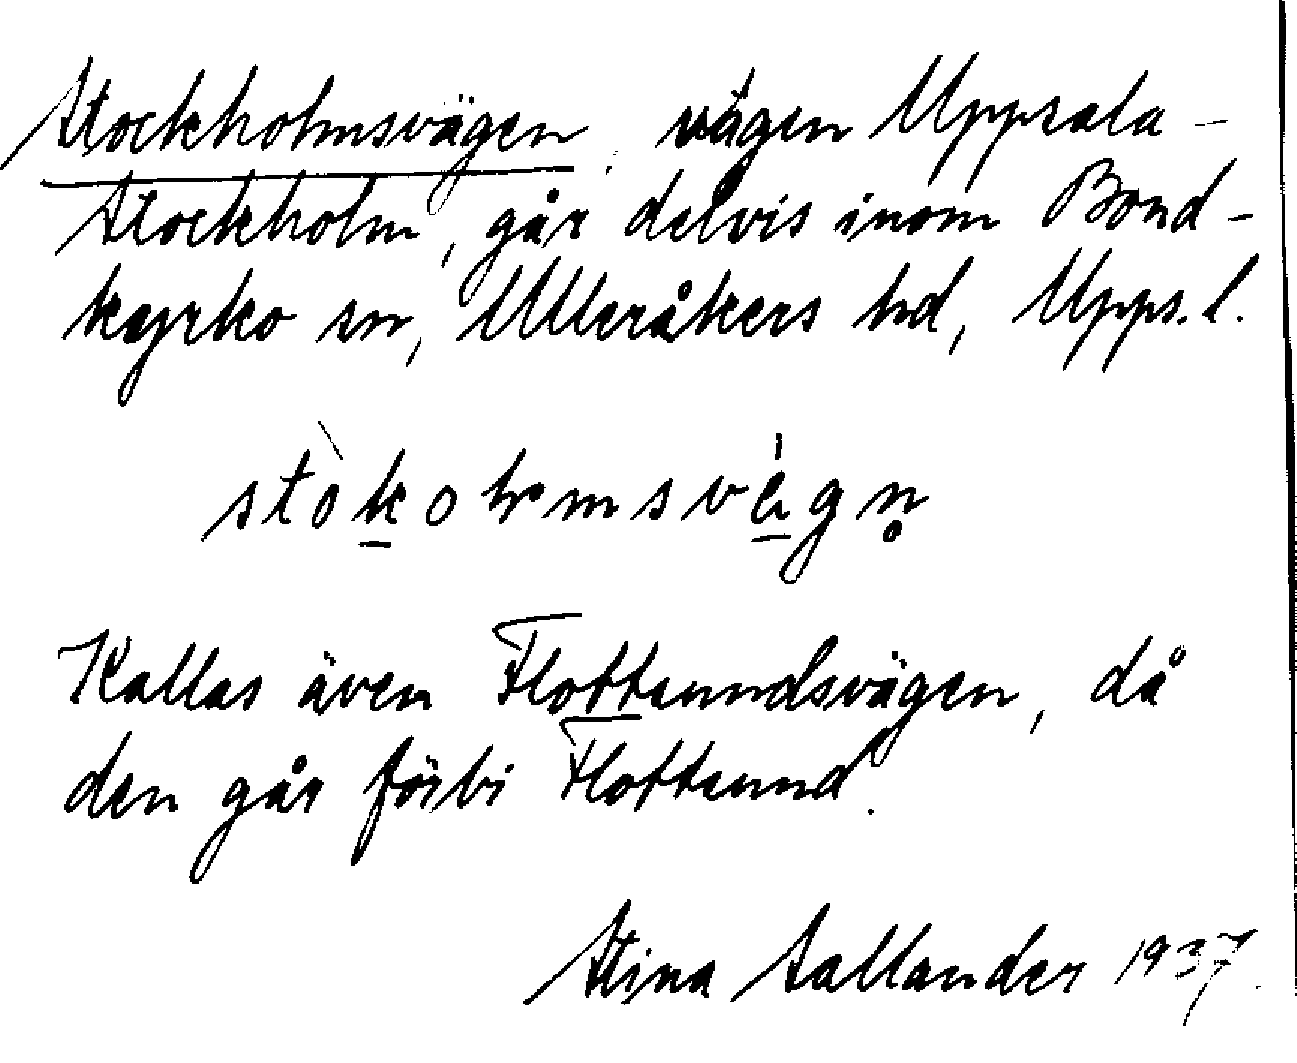 Stockholmsvägen, vägen Uppsala –
Stockholm, går delvis inom Bond-
kyrko sn, Ulleråkers hd, Upps. l.
stòkolmsvä́gn̥
Kallas även Flottsundsvägen, då
den går förbi Flottsund.
Stina Sallander 1937.